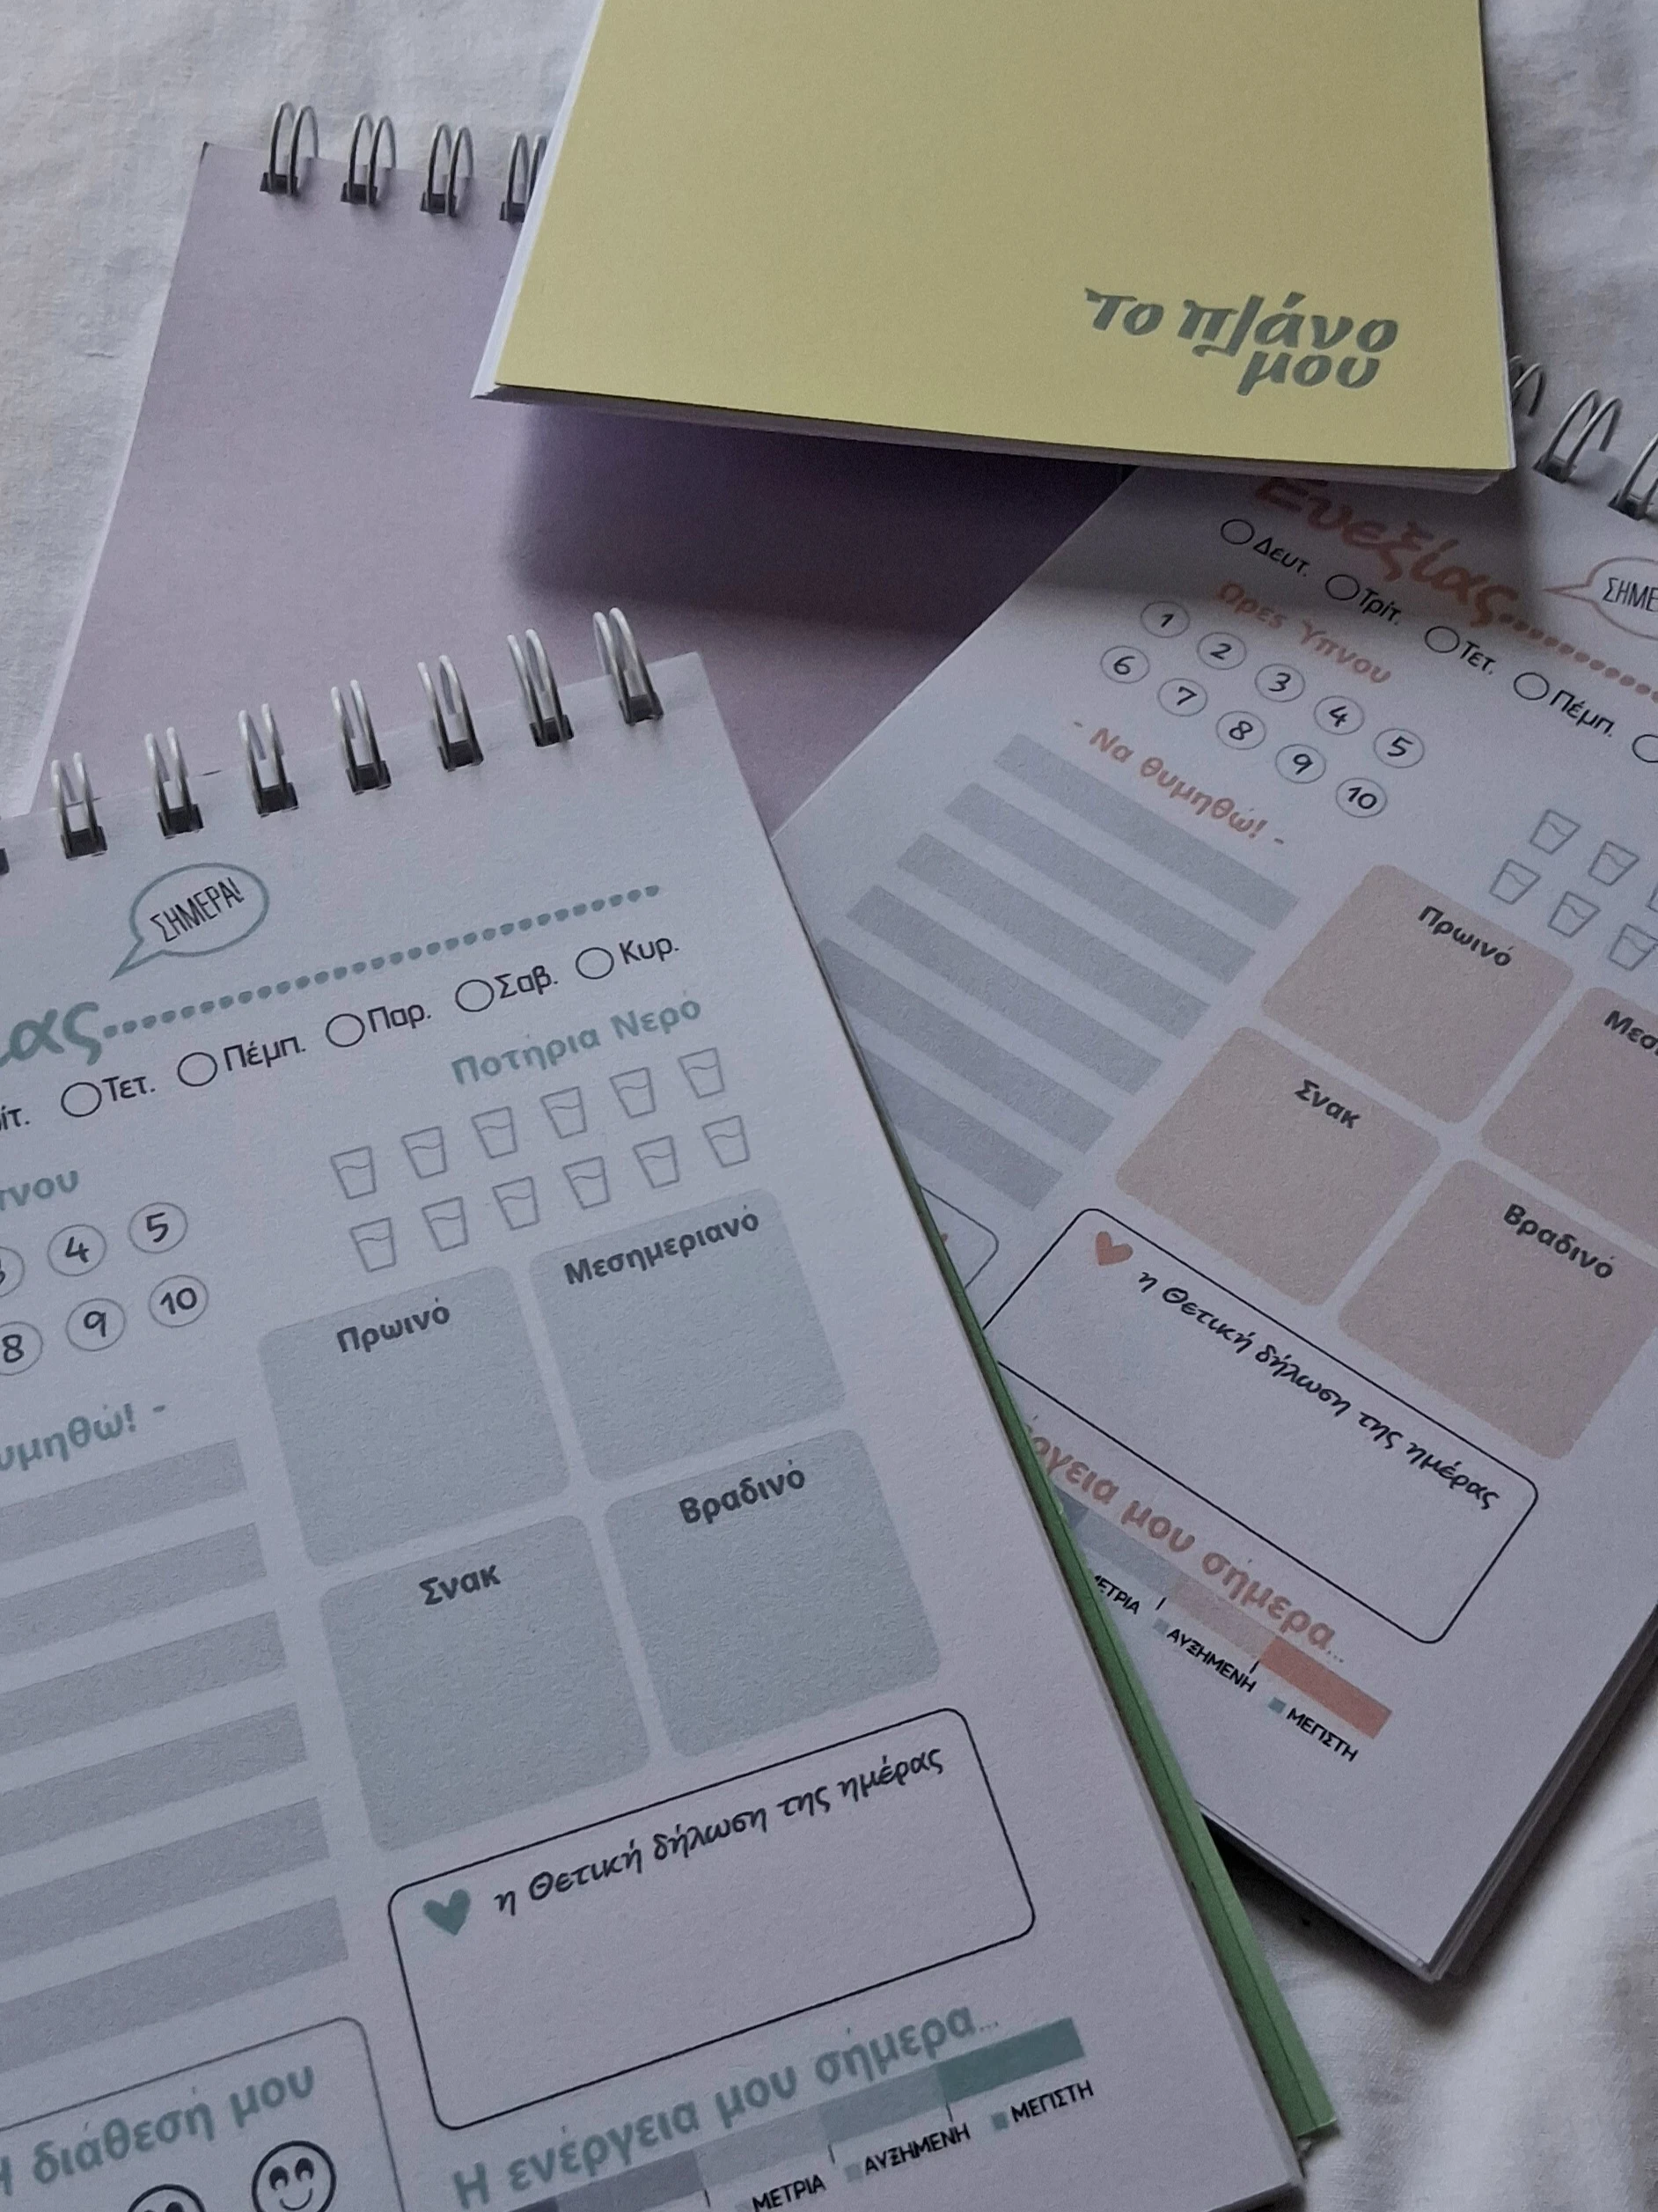 το πλάνο
μου
Ευεξίας
ΣΗΜΕ
Δευτ. Τρίτ. Τετ. Πέμπ.
Ώρες Ύπνου
1 2 3 4 5
6 7 8 9 10
- Να θυμηθώ! -
Πρωινό
Μεσ
Σνακ
Βραδινό
η Θετική δήλωση της ημέρας
έργεια μου σήμερα...
ΜΕΤΡΙΑ ΑΥΞΗΜΕΝΗ ΜΕΓΙΣΤΗ
ΣΗΜΕΡΑ!
ίας
ίτ. Τετ. Πέμπ. Παρ. Σαβ. Κυρ.
Ποτήρια Νερό
πνου
4 5
8 9 10
υμηθώ! -
Πρωινό
Μεσημεριανό
Σνακ
Βραδινό
η Θετική δήλωση της ημέρας
Η διάθεσή μου
Η ενέργεια μου σήμερα...
ΜΕΤΡΙΑ ΑΥΞΗΜΕΝΗ ΜΕΓΙΣΤΗ